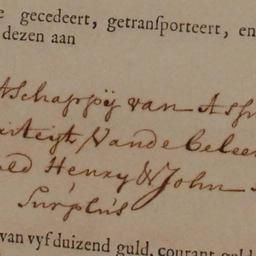 e gecedeert, getranſporteert, en
dezen aan
atſchappÿ van Aſſu
Vande Belee
Henry & John
Surplus
van vyf duizend guld. courant geld